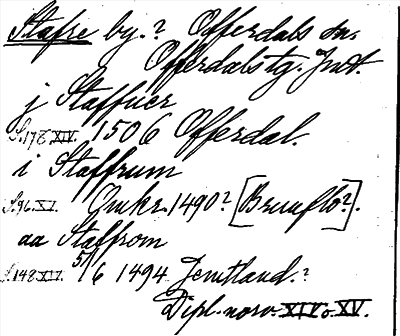 Stafre by.? Offerdals sn.
Offerdalstg. Jmt.
j Staffruer
S.178 XIV. 1506 Offerdal.
i Staffrum
S.96.XV. Omkr. 1490? [Brunflo?].
aa Staffrom
S.148 XIV. 5/6 1494 Jemtland.?
Dipl. norv. XIV o. XV.